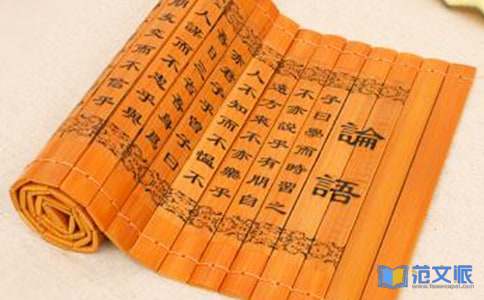 論語
子曰學而時習之
不亦說乎有朋自
遠方來不亦樂乎
人不知而不慍不
亦君子乎曾子曰
吾日三省吾身為
人謀而不忠乎與
朋友交而不信乎
范文派
www.fanwenpai.com